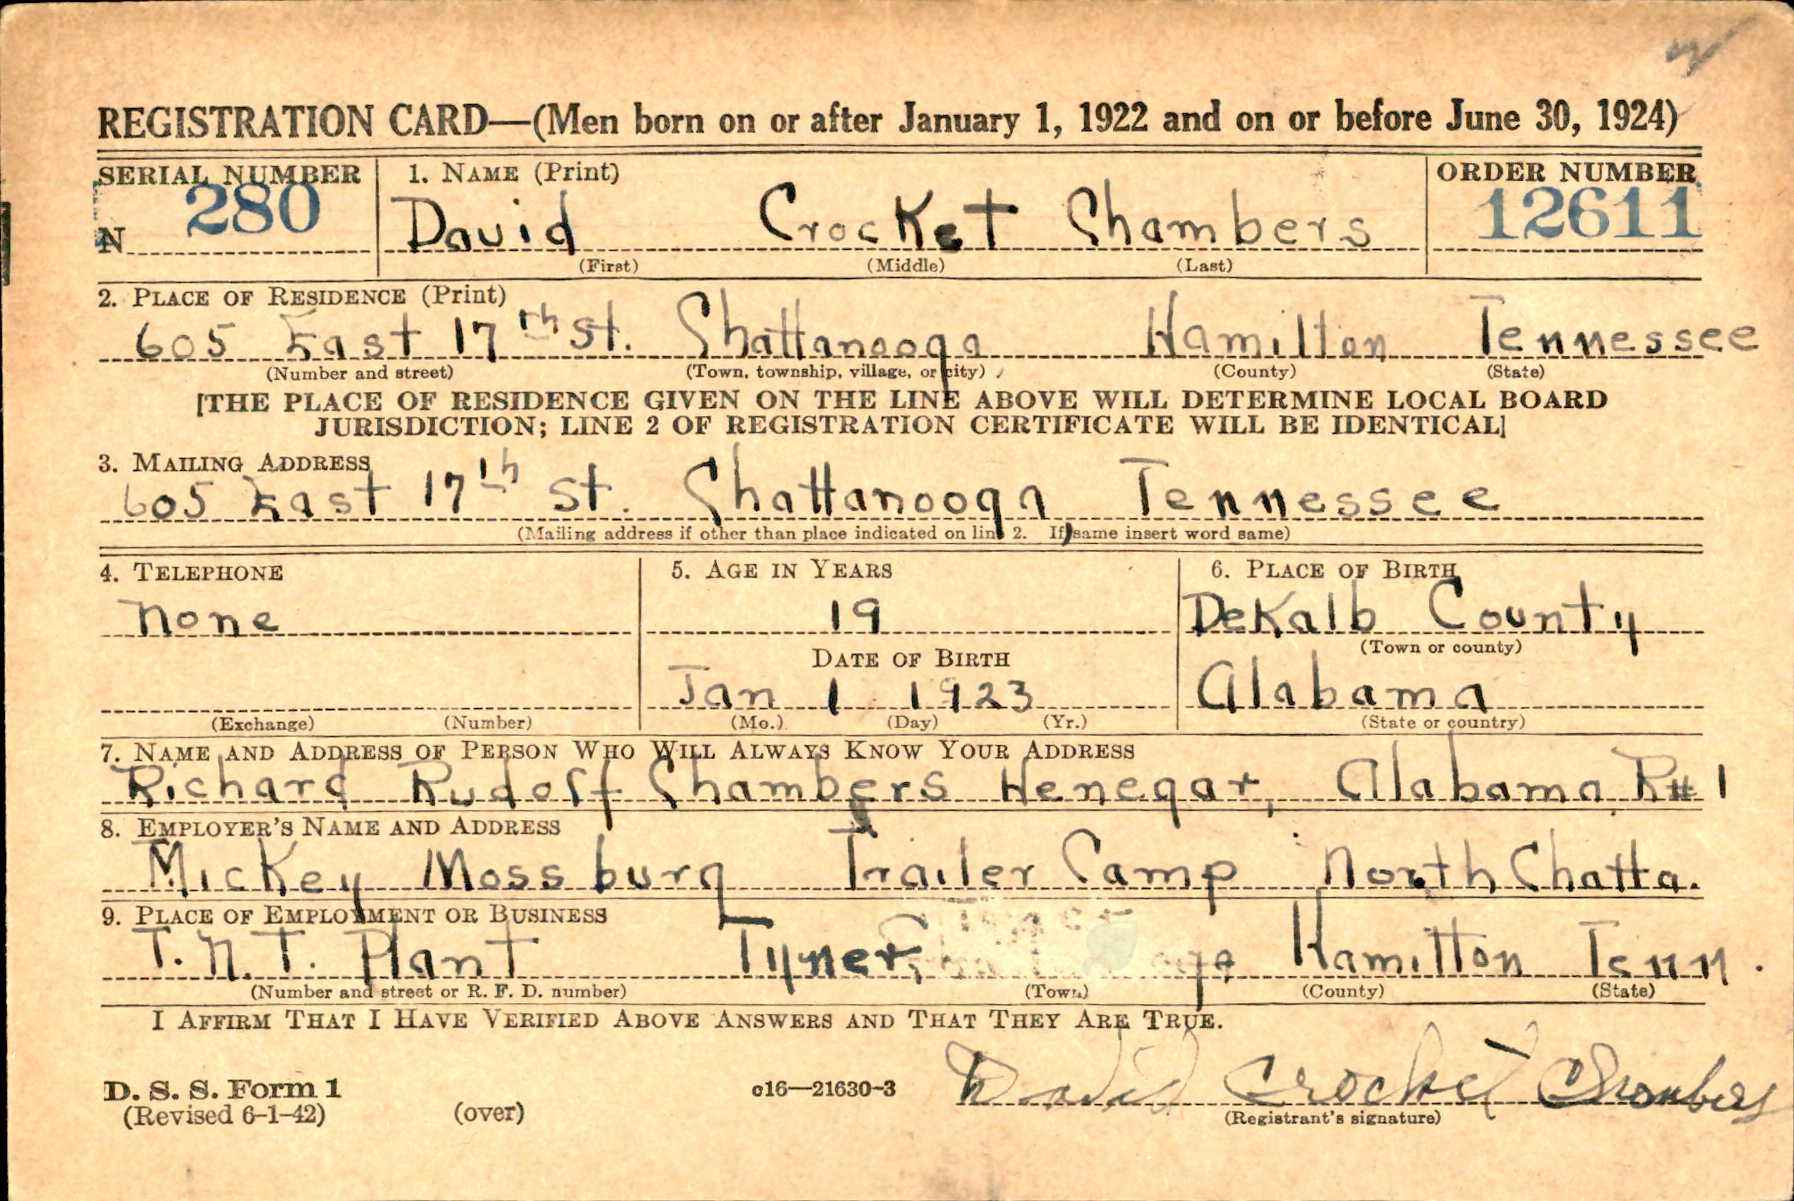 REGISTRATION CARD—(Men born on or after January 1, 1922 and on or before June 30, 1924)
SERIAL NUMBER 1. NAME (Print) ORDER NUMBER
N 280 David Crocket Chambers 12611
(First) (Middle) (Last)
2. PLACE OF RESIDENCE (Print)
605 East 17th St. Chattanooga Hamilton Tennessee
(Number and street) (Town, township, village, or city) (County) (State)
[THE PLACE OF RESIDENCE GIVEN ON THE LINE ABOVE WILL DETERMINE LOCAL BOARD
JURISDICTION; LINE 2 OF REGISTRATION CERTIFICATE WILL BE IDENTICAL]
3. MAILING ADDRESS
605 East 17th St. Chattanooga, Tennessee
(Mailing address if other than place indicated on line 2. If same insert word same)
4. TELEPHONE 5. AGE IN YEARS 6. PLACE OF BIRTH
none 19 DeKalb County
(Town or county)
DATE OF BIRTH
Jan 1 1923 Alabama
(Exchange) (Number) (Mo.) (Day) (Yr.) (State or country)
7. NAME AND ADDRESS OF PERSON WHO WILL ALWAYS KNOW YOUR ADDRESS
Richard Rudolf Chambers Henegar, Alabama R#1
8. EMPLOYER'S NAME AND ADDRESS
Mickey Moss burg Trailer Camp North Chatta.
9. PLACE OF EMPLOYMENT OR BUSINESS
T.N.T. Plant Tyner, Hamilton Tenn.
(Number and street or R. F. D. number) (Town) (County) (State)
I AFFIRM THAT I HAVE VERIFIED ABOVE ANSWERS AND THAT THEY ARE TRUE.
D. S. S. Form 1
(Revised 6-1-42) (over) c16—21630-3 David Crocket Chambers
(Registrant's signature)